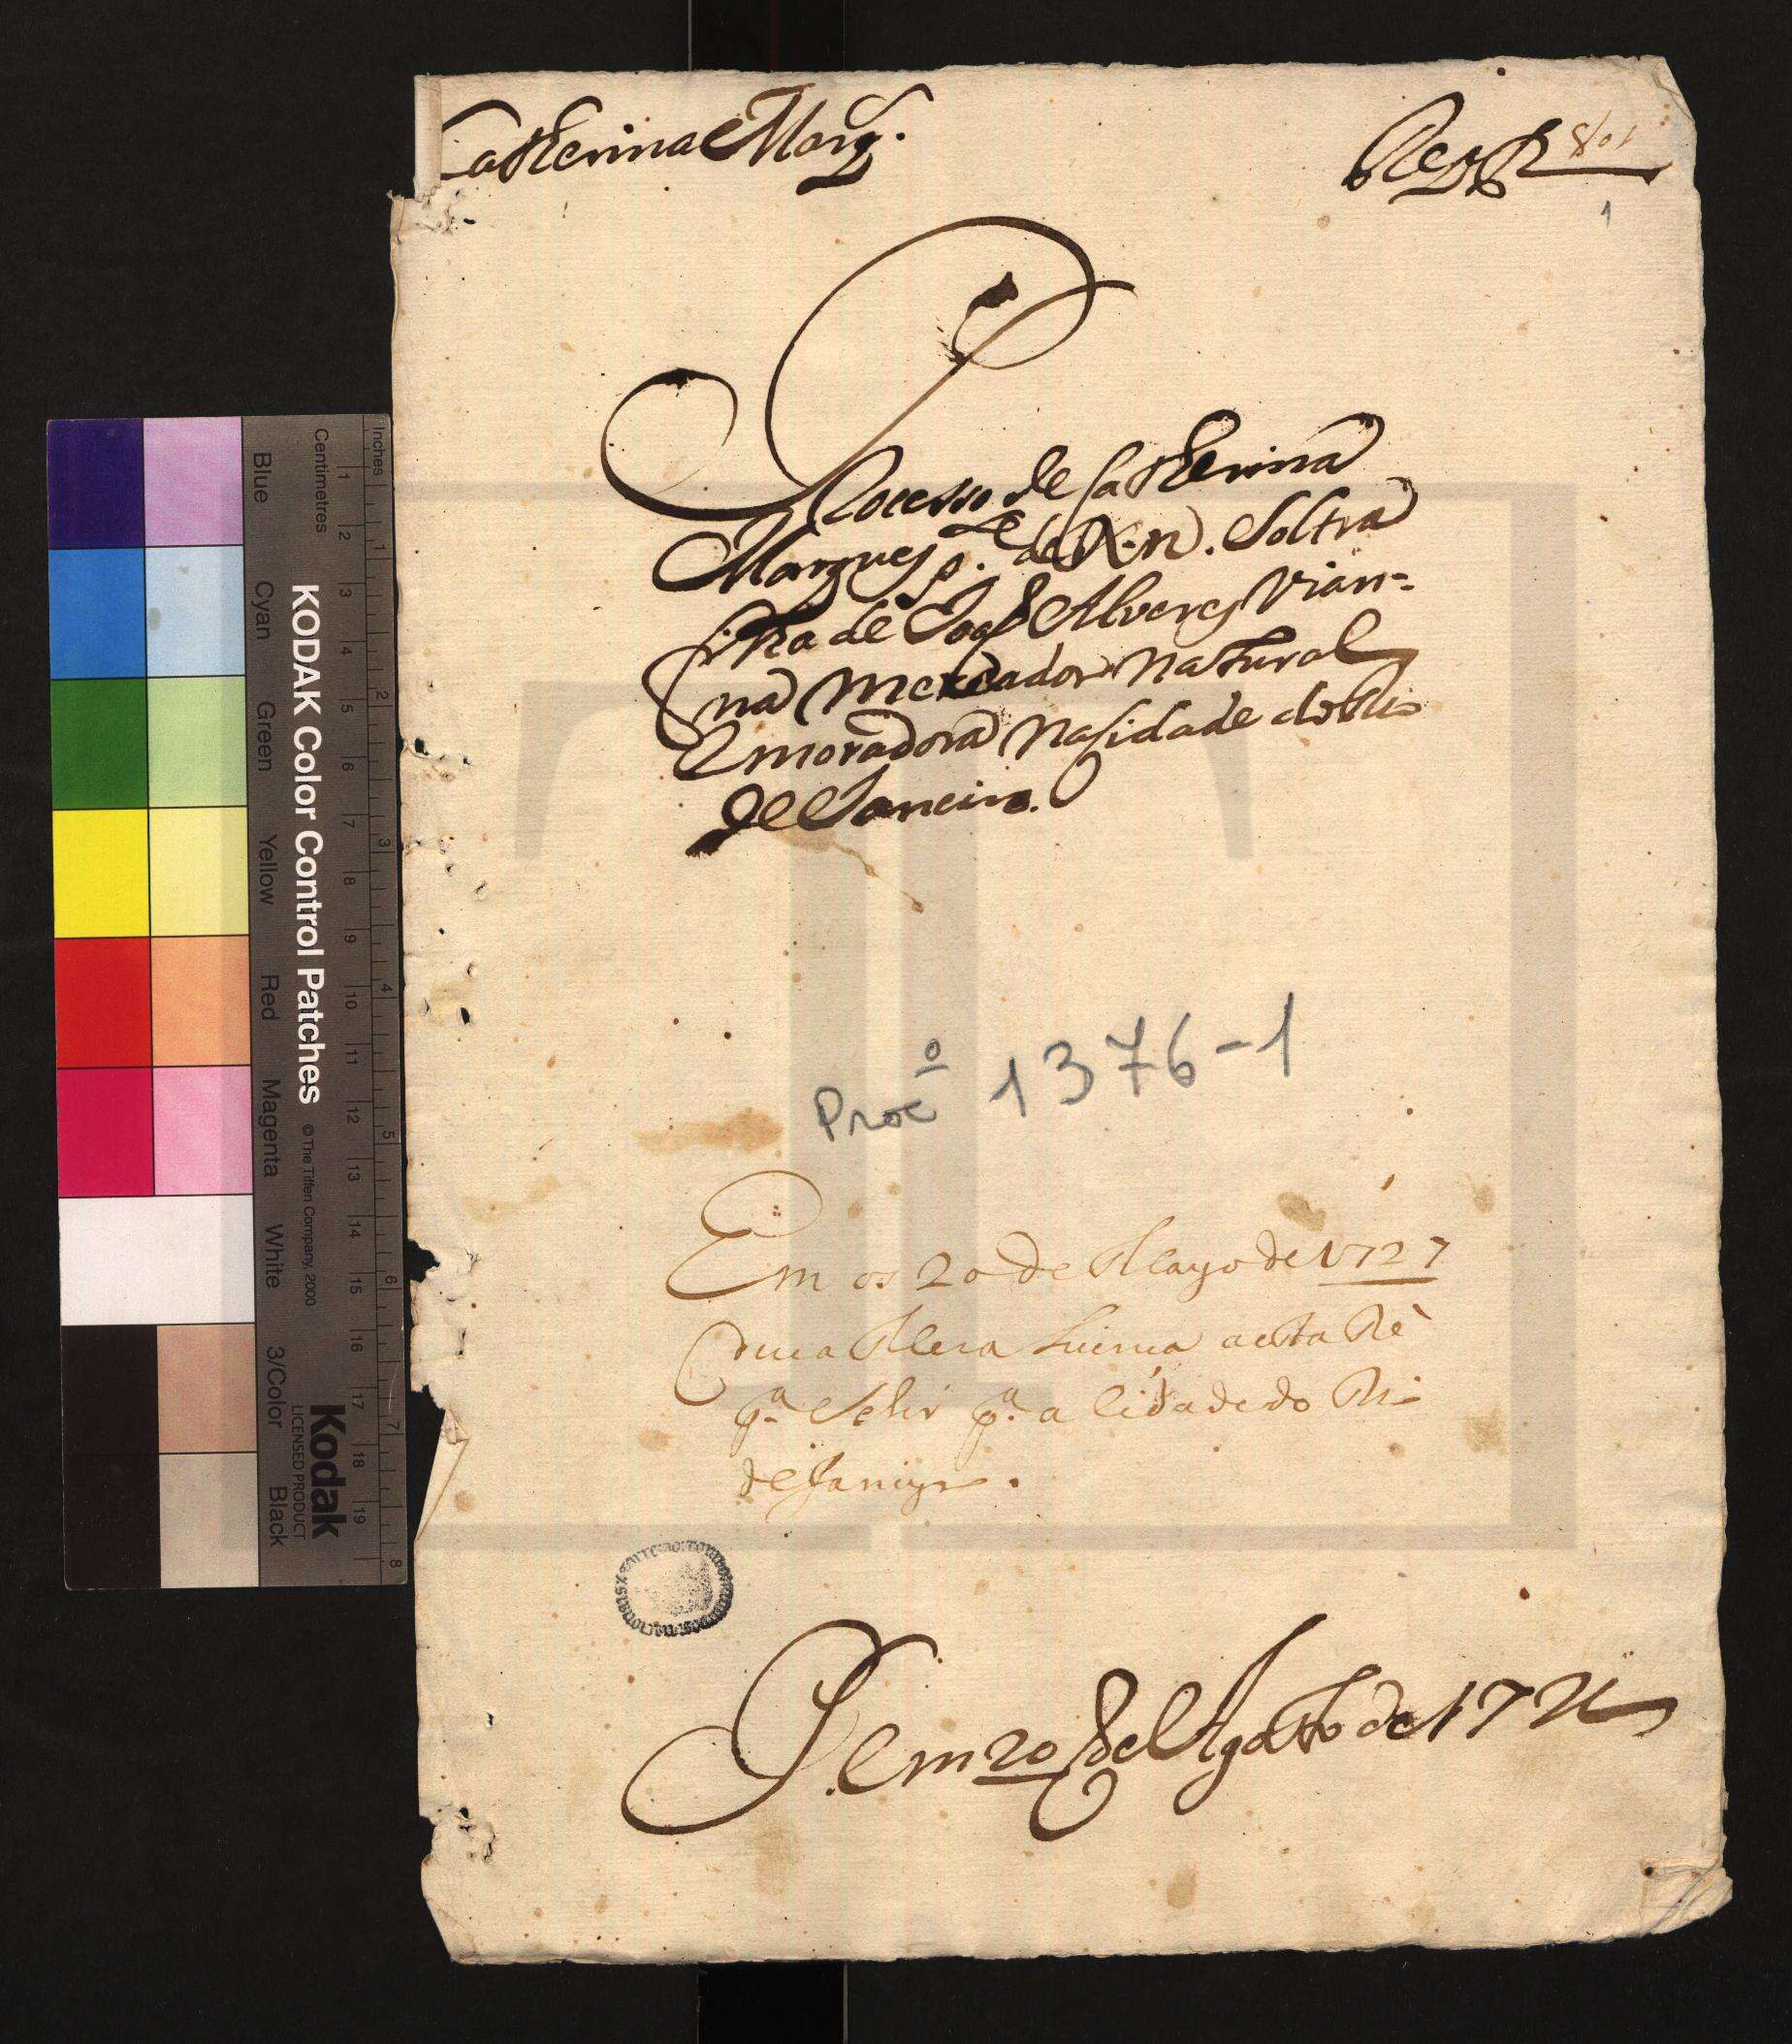 Catherina Marq.
1
Processo de Catherina
Marques p.te de X.n. Soltra
filha de Joaõ Alveres Vian-
na Mercador Natural
e moradora na Cidade do Rio
de Janeiro.
Procº 1376-1
Em os 20 de Mayo de 1727
a Meza Licença a esta Rè
p.ª se hir p.ª a Cidade do Rio
de Janeyro.
P. em 20 de Agosto de 172
Inches
Centimetres
1 2 3 4 5 6 7 8 9 10 11 12 13 14 15 16 17 18 19
1 2 3 4 5 6 7 8
KODAK Color Control Patches © The Tiffen Company, 2000
Kodak
LICENSED PRODUCT
Blue
Cyan
Green
Yellow
Red
Magenta
White
3/Color
Black